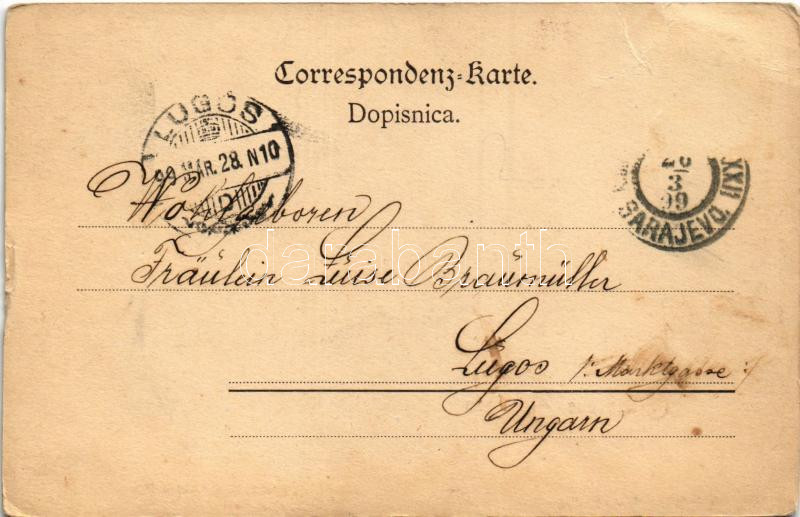 Correspondenz-Karte.
Dopisnica.
LUGOS
99 MÁR. 28. N10
3
99
SARAJEVO. XXII
Wohlgeboren
Fräulein Luise Braumüller
Lugos /: Marktgasse :/
Ungarn
darabanth